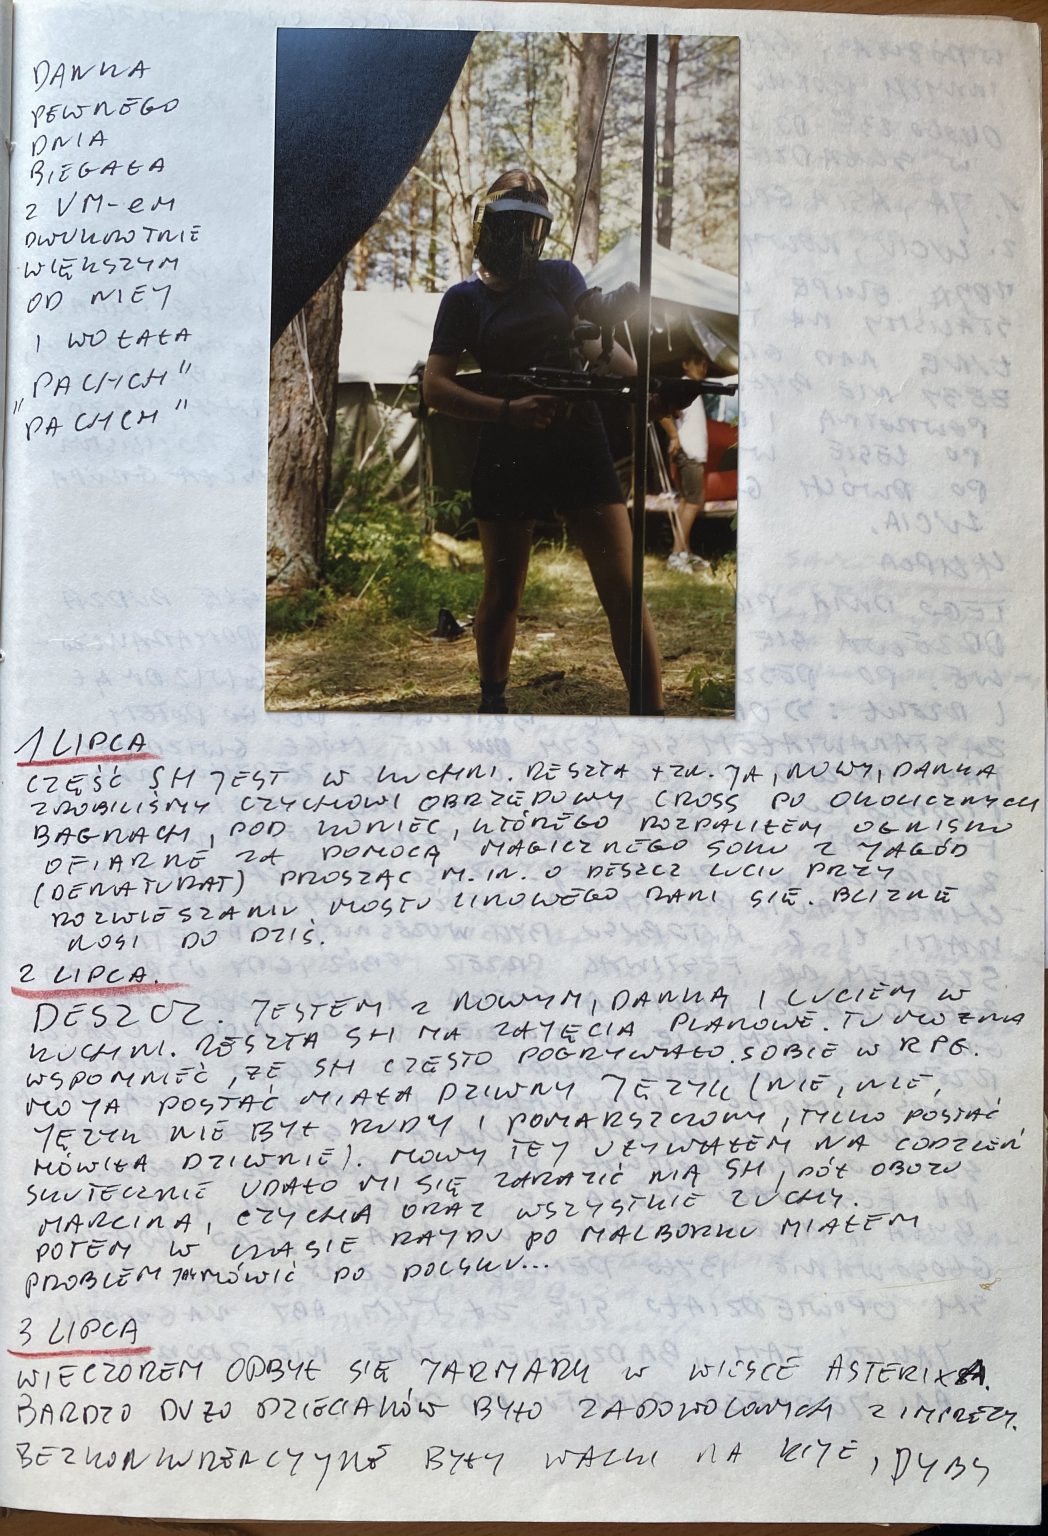 DANKA
PEWNEGO
DNIA
BIEGAŁA
Z VM-em
DWUKROTNIE
WIĘKSZYM
OD NIEJ
I WOŁAŁA
"PACHCH"
"PACHCH"
1 LIPCA
CZĘŚĆ SH JEST W KUCHNI. RESZTA TZN. JA, NOWY, DANKA
ZROBILIŚMY CZYCHOWI OBRZĘDOWY CROSS PO OKOLICZNYCH
BAGNACH, POD KONIEC, KTÓREGO ROZPALIŁEM OGNISKO
OFIARNE ZA POMOCĄ MAGICZNEGO SOKU Z JAGÓD
(DENATURAT) PROSZĄC M. IN. O DESZCZ LUCIU PRZY
ROZWIESZANIU MOSTU LINOWEGO RANI SIĘ. BLIZNĘ
NOSI DO DZIŚ.
2 LIPCA.
DESZCZ. JESTEM Z NOWYM, DANKĄ I LUCIEM W
KUCHNI. RESZTA SH MA ZAJĘCIA PLANOWE. TU MOŻNA
WSPOMNIEĆ, ŻE SH CZĘSTO POGRYWAŁO SOBIE W RPG.
MOJA POSTAĆ MIAŁA DZIWNY JĘZYK (NIE, NIE,
JĘZYK NIE BYŁ RUDY I POMARSZCZONY, TYLKO POSTAĆ
MÓWIŁA DZIWNIE). MOWY TEJ UŻYWAŁEM NA CODZIEŃ
SKUTECZNIE UDAŁO MI SIĘ ZARAZIĆ NIĄ SH, PÓŁ OBOZU
MARCINA, CZYCHA ORAZ WSZYSTKIE ZUCHY.
POTEM W CZASIE RAJDU PO MALBORKU MIAŁEM
PROBLEM MÓWIĆ PO POLSKU...
3 LIPCA
WIECZOREM ODBYŁ SIĘ JARMARK W WIOSCE ASTERIXA.
BARDZO DUŻO DZIECIAKÓW BYŁO ZADOWOLONYCH Z IMPREZY.
BEZKONKURENCYJNE BYŁY WALKI NA KIJE, DYBY